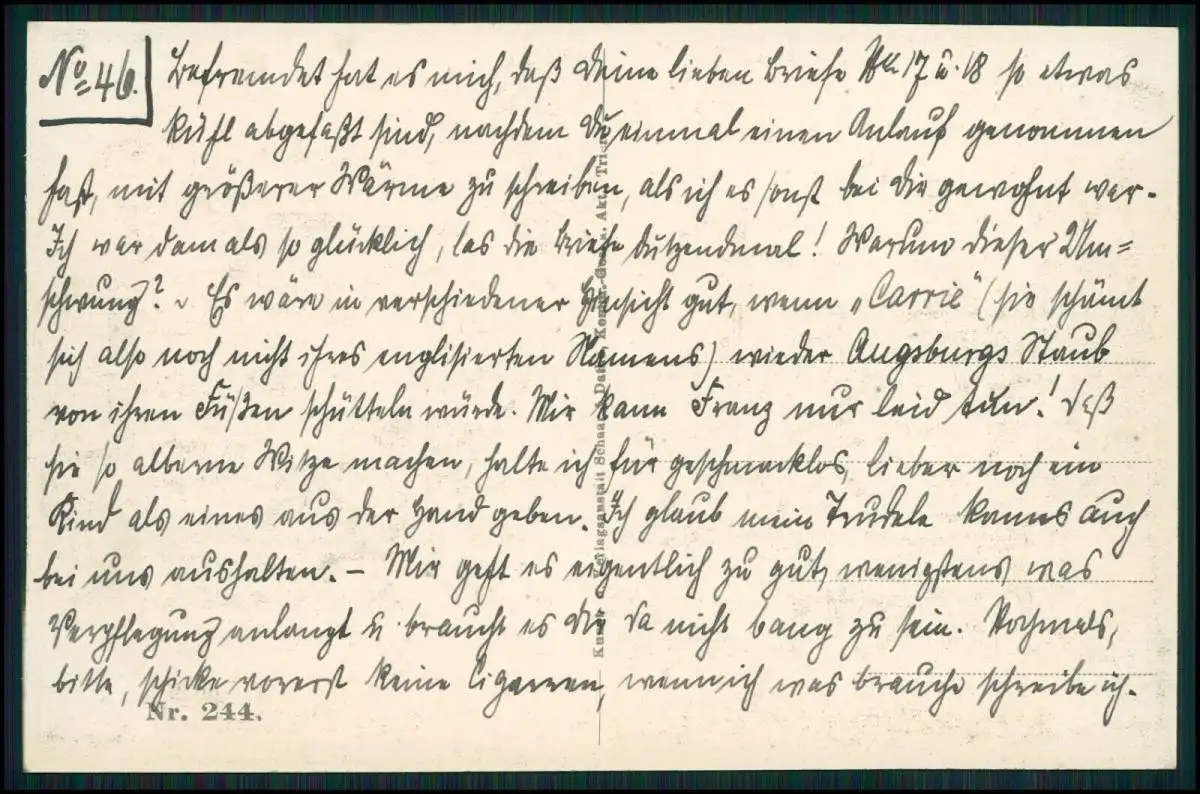 No 46. Befremdet hat es mich, daß Deine lieben Briefe No 17 u. 18 so etwas
kühl abgefaßt sind, nachdem Du einmal einen Anlauf genommen
hast, mit größerer Wärme zu schreiben, als ich es sonst bei Dir gewohnt war.
Ich war damals so glücklich, las die Briefe dutzendmal! Warum dieser Um=
schwung? Es wäre in verschiedener Hinsicht gut, wenn „Carrie" (sie schämt
sich also noch nicht ihres englisierten Namens) wieder Augsburgs Staub
von ihren Füßen schütteln würde. Mir kann Franz nur leid tun! Daß
sie so alberne Witze machen, halte ich für geschmacklos, lieber noch ein
Kind als eines aus der Hand geben. Ich glaub mein Trudele kanns auch
bei uns aushalten. – Mir geht es eigentlich zu gut, wenigstens was
Verpflegung anlangt u. braucht es Dir da nicht bang zu sein. Nochmals,
bitte, schicke vorerst keine Cigarren, wenn ich was brauche schreibe ich.
Nr. 244.
Kunst- u. Verlagsanstalt Schaar &amp; Dathe, Komm.-Ges. a. Akt., Trier